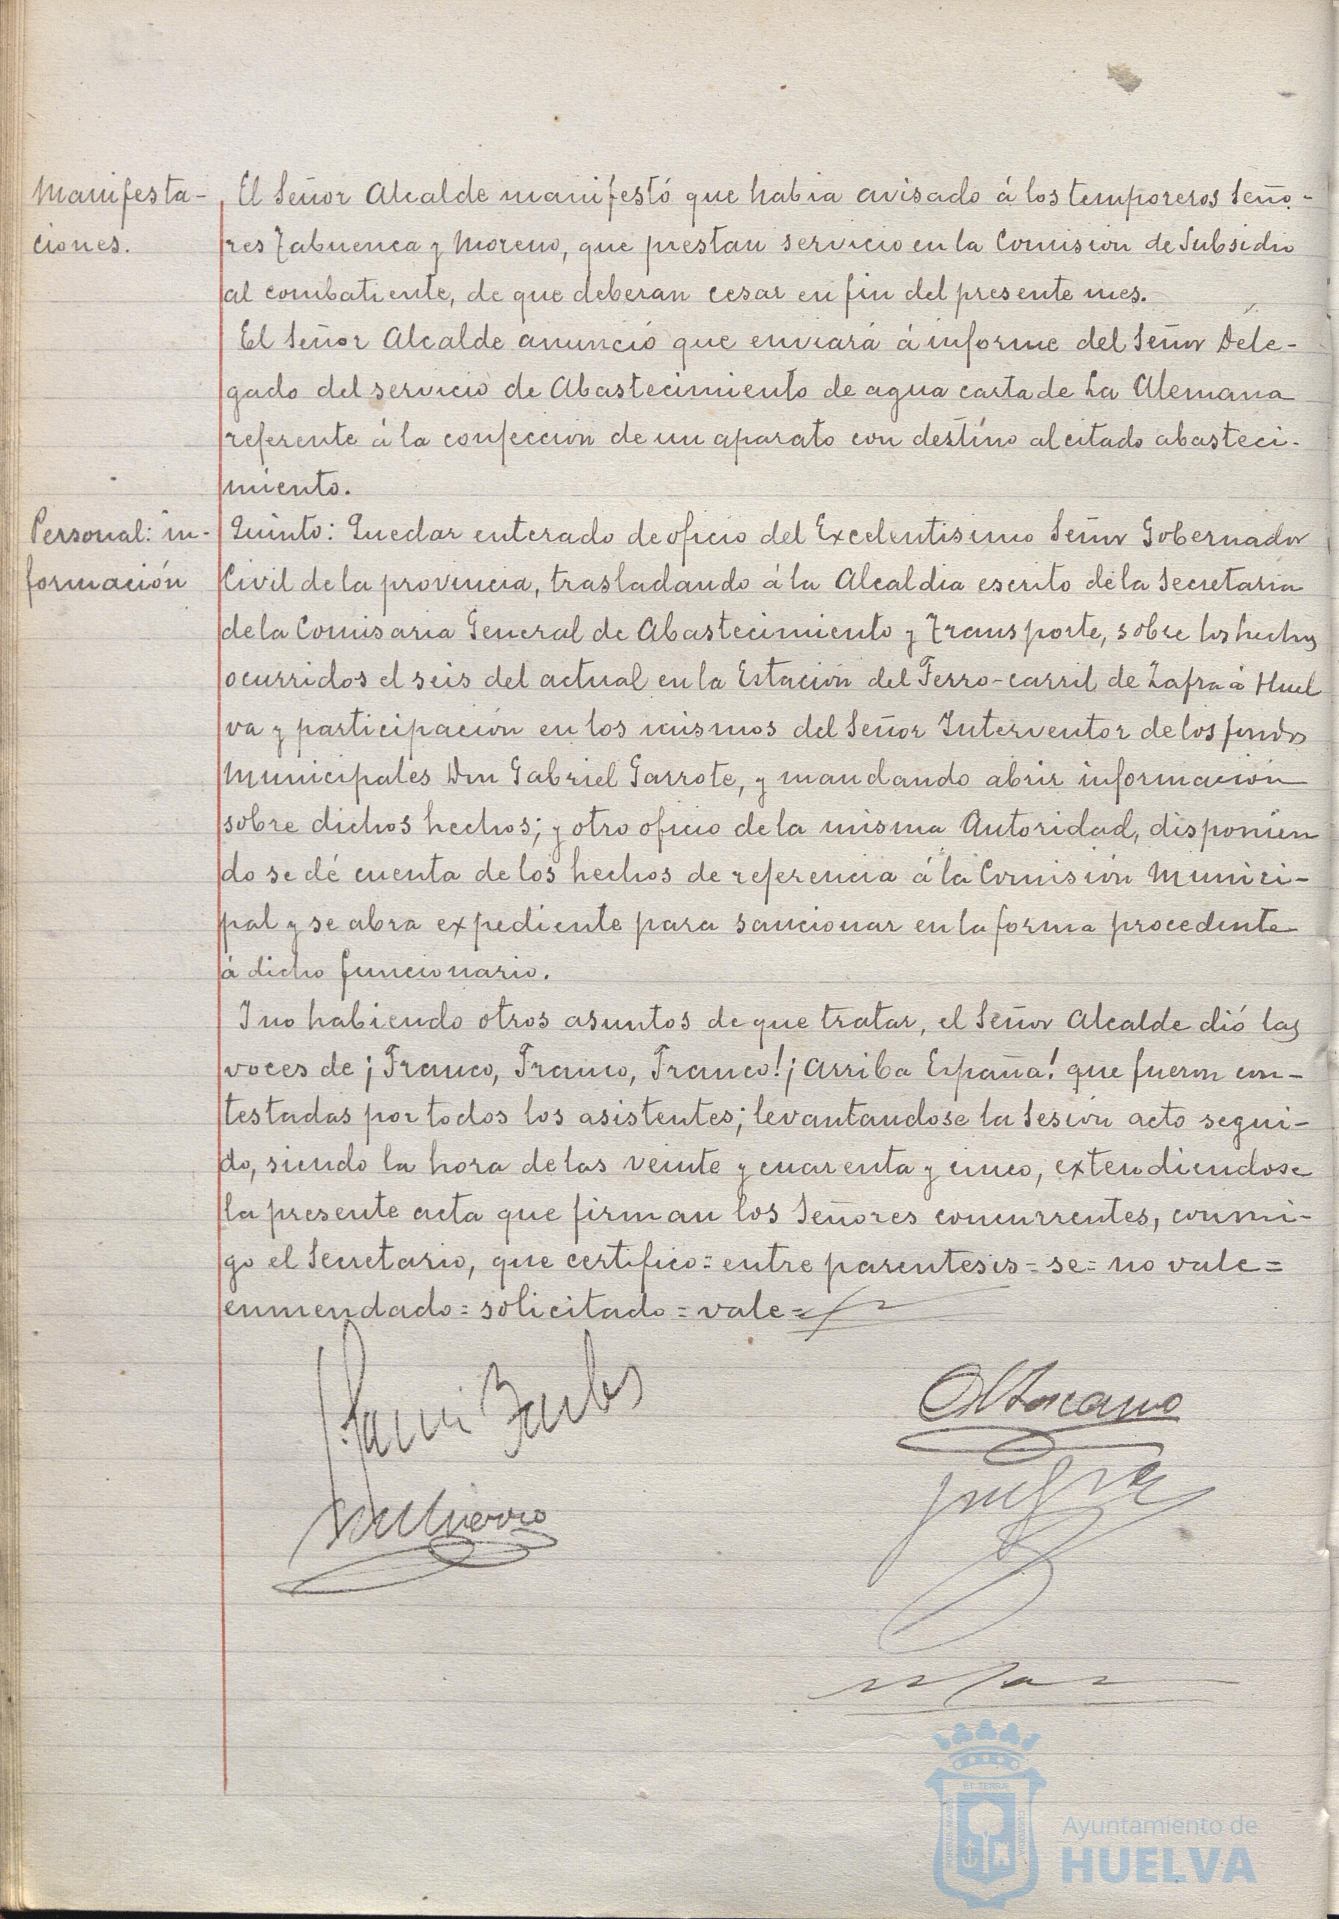 Manifesta-
ciones.
El Señor Alcalde manifestó que habia avisado á los temporeros Seño-
res Zabuenca y Moreno, que prestan servicio en la Comision de Subsidio
al combatiente, de que deberan cesar en fin del presente mes.
El Señor Alcalde anunció que enviará á informe del Señor Dele-
gado del servicio de Abastecimiento de agua carta de La Alemana
referente á la confeccion de un aparato con destino al citado abasteci-
miento.
Personal: in-
formación
Quinto: Quedar enterado de oficio del Excelentisimo Señor Gobernador
Civil de la provincia, trasladando á la Alcaldia escrito de la Secretaria
de la Comisaria General de Abastecimiento y Transporte, sobre los hechos
ocurridos el seis del actual en la Estación del Ferro-carril de Zafra á Huel
va y participación en los mismos del Señor Interventor de los fondos
Municipales Don Gabriel Garrote, y mandando abrir información
sobre dichos hechos; y otro oficio de la misma Autoridad, disponien
do se dé cuenta de los hechos de referencia á la Comisión Munici-
pal y se abra expediente para sancionar en la forma procedente
á dicho funcionario.
Y no habiendo otros asuntos de que tratar, el Señor Alcalde dió las
voces de ¡Franco, Franco, Franco! ¡Arriba España! que fueron con-
testadas por todos los asistentes; levantandose la Sesión acto segui-
do, siendo la hora de las veinte y cuarenta y cinco, extendiendose
la presente acta que firman los Señores concurrentes, conmi-
go el Secretario, que certifico = entre parentesis = se = no vale =
enmendado = solicitado = vale =
Ayuntamiento de
HUELVA